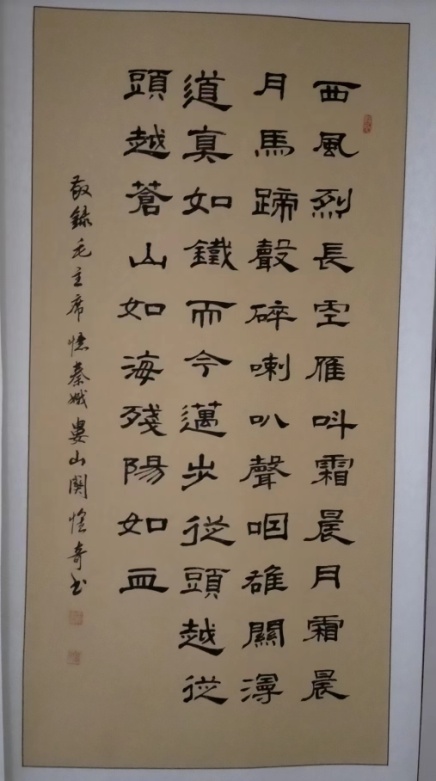 西風烈長空雁叫霜晨月霜晨
月馬蹄聲碎喇叭聲咽雄關漫
道真如鐵而今邁步從頭越從
頭越蒼山如海殘陽如血
敬錄毛主席憶秦娥婁山関奇书